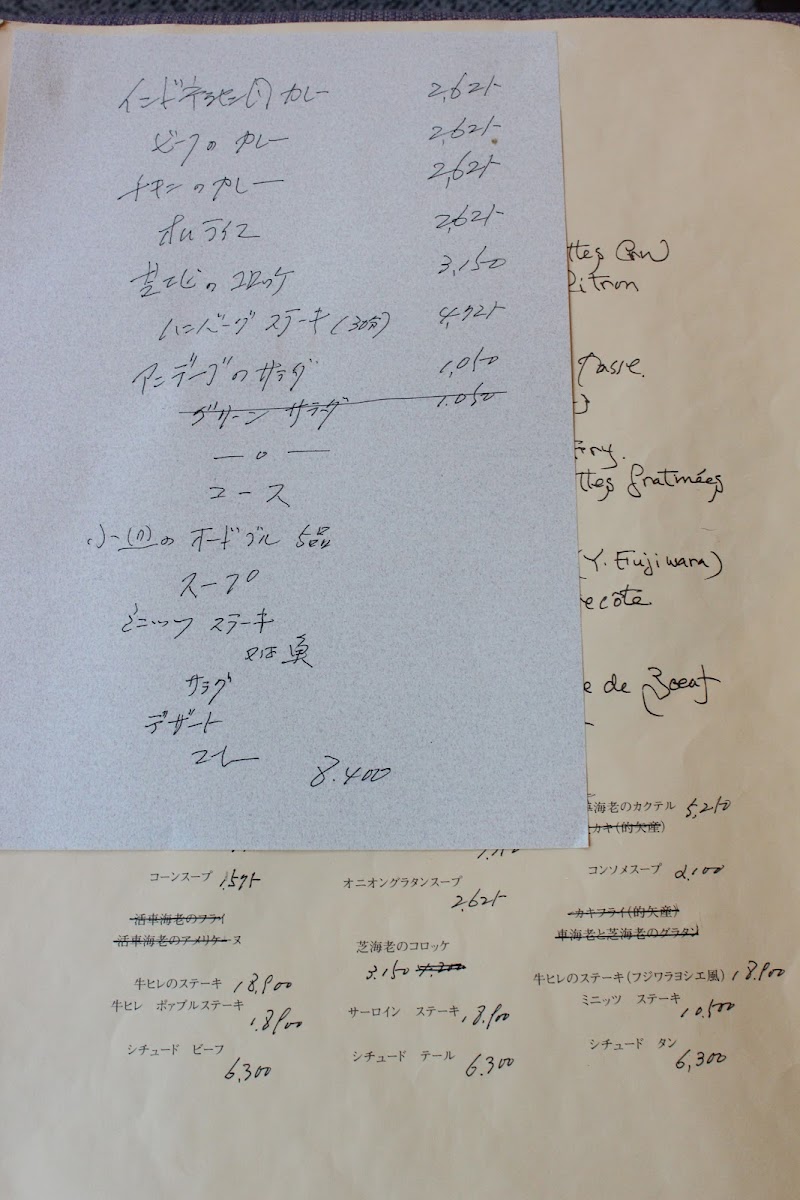 カレー 2,625
ビーフのカレー 2,625
チキンのカレー 2,625
オムライス 2,625
芝エビのコロッケ 3,150
ハンバーグ ステーキ(30分) 4,725
アンディーブのサラダ 1,050
グリーン サラダ 1.050
— o —
コース
小さなオードブル 5品
スープ
ミニッツ ステーキ
又は 魚
サラダ
デザート
コーヒー
8.400
ttes Cru
Citron
Tasse.
ttes Gratinées
(Y. Fujiwara)
ecôte.
e de Boeuf
海老のカクテル 5,250
カキ(的矢産)
コーンスープ 1,575
オニオングラタンスープ 2,625
コンソメスープ 2,100
活車海老のフライ
活車海老のアメリケーヌ
カキフライ(的矢産)
車海老と芝海老のグラタン
芝海老のコロッケ
3.150 4.200
牛ヒレのステーキ 18,900
牛ヒレ ポァブルステーキ 18900
サーロイン ステーキ 18,900
牛ヒレのステーキ(フジワラヨシエ風) 18.900
ミニッツ ステーキ 10,500
シチュード ビーフ 6,300
シチュード テール 6.300
シチュード タン 6,300